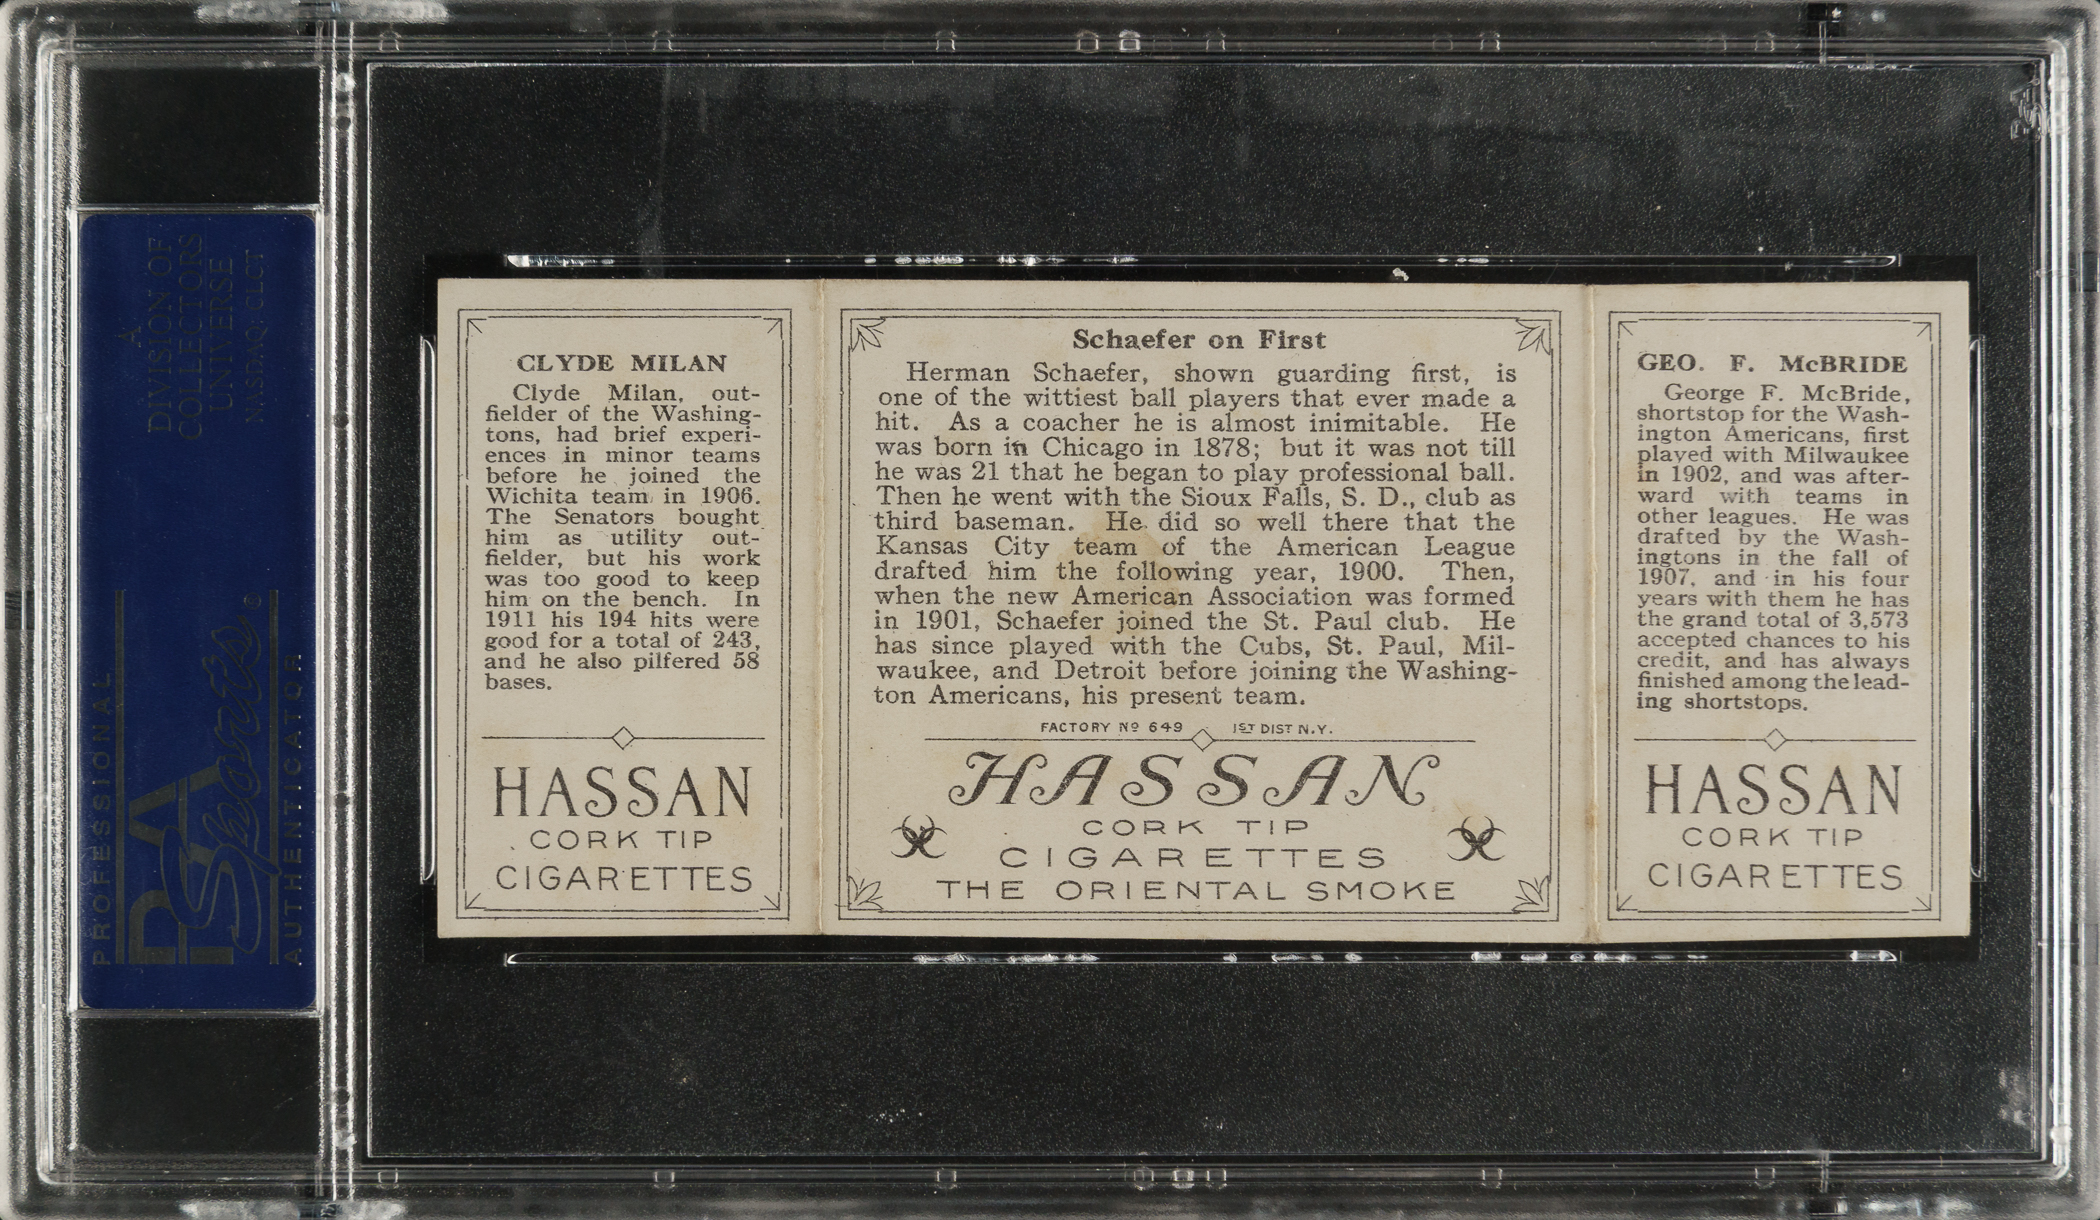 A
DIVISION OF
COLLECTORS
UNIVERSE
NASDAQ: CLCT
PROFESSIONAL
PSA
Sports
©
AUTHENTICATOR
CLYDE MILAN
Clyde Milan, out-
fielder of the Washing-
tons, had brief experi-
ences in minor teams
before he joined the
Wichita team in 1906.
The Senators bought
him as utility out-
fielder, but his work
was too good to keep
him on the bench. In
1911 his 194 hits were
good for a total of 243,
and he also pilfered 58
bases.
HASSAN
CORK TIP
CIGARETTES
Schaefer on First
Herman Schaefer, shown guarding first, is
one of the wittiest ball players that ever made a
hit. As a coacher he is almost inimitable. He
was born in Chicago in 1878; but it was not till
he was 21 that he began to play professional ball.
Then he went with the Sioux Falls, S. D., club as
third baseman. He did so well there that the
Kansas City team of the American League
drafted him the following year, 1900. Then,
when the new American Association was formed
in 1901, Schaefer joined the St. Paul club. He
has since played with the Cubs, St. Paul, Mil-
waukee, and Detroit before joining the Washing-
ton Americans, his present team.
FACTORY Nº 649 1ST DIST N.Y.
HASSAN
CORK TIP
CIGARETTES
THE ORIENTAL SMOKE
GEO. F. McBRIDE
George F. McBride,
shortstop for the Wash-
ington Americans, first
played with Milwaukee
in 1902, and was after-
ward with teams in
other leagues. He was
drafted by the Wash-
ingtons in the fall of
1907, and in his four
years with them he has
the grand total of 3,573
accepted chances to his
credit, and has always
finished among the lead-
ing shortstops.
HASSAN
CORK TIP
CIGARETTES